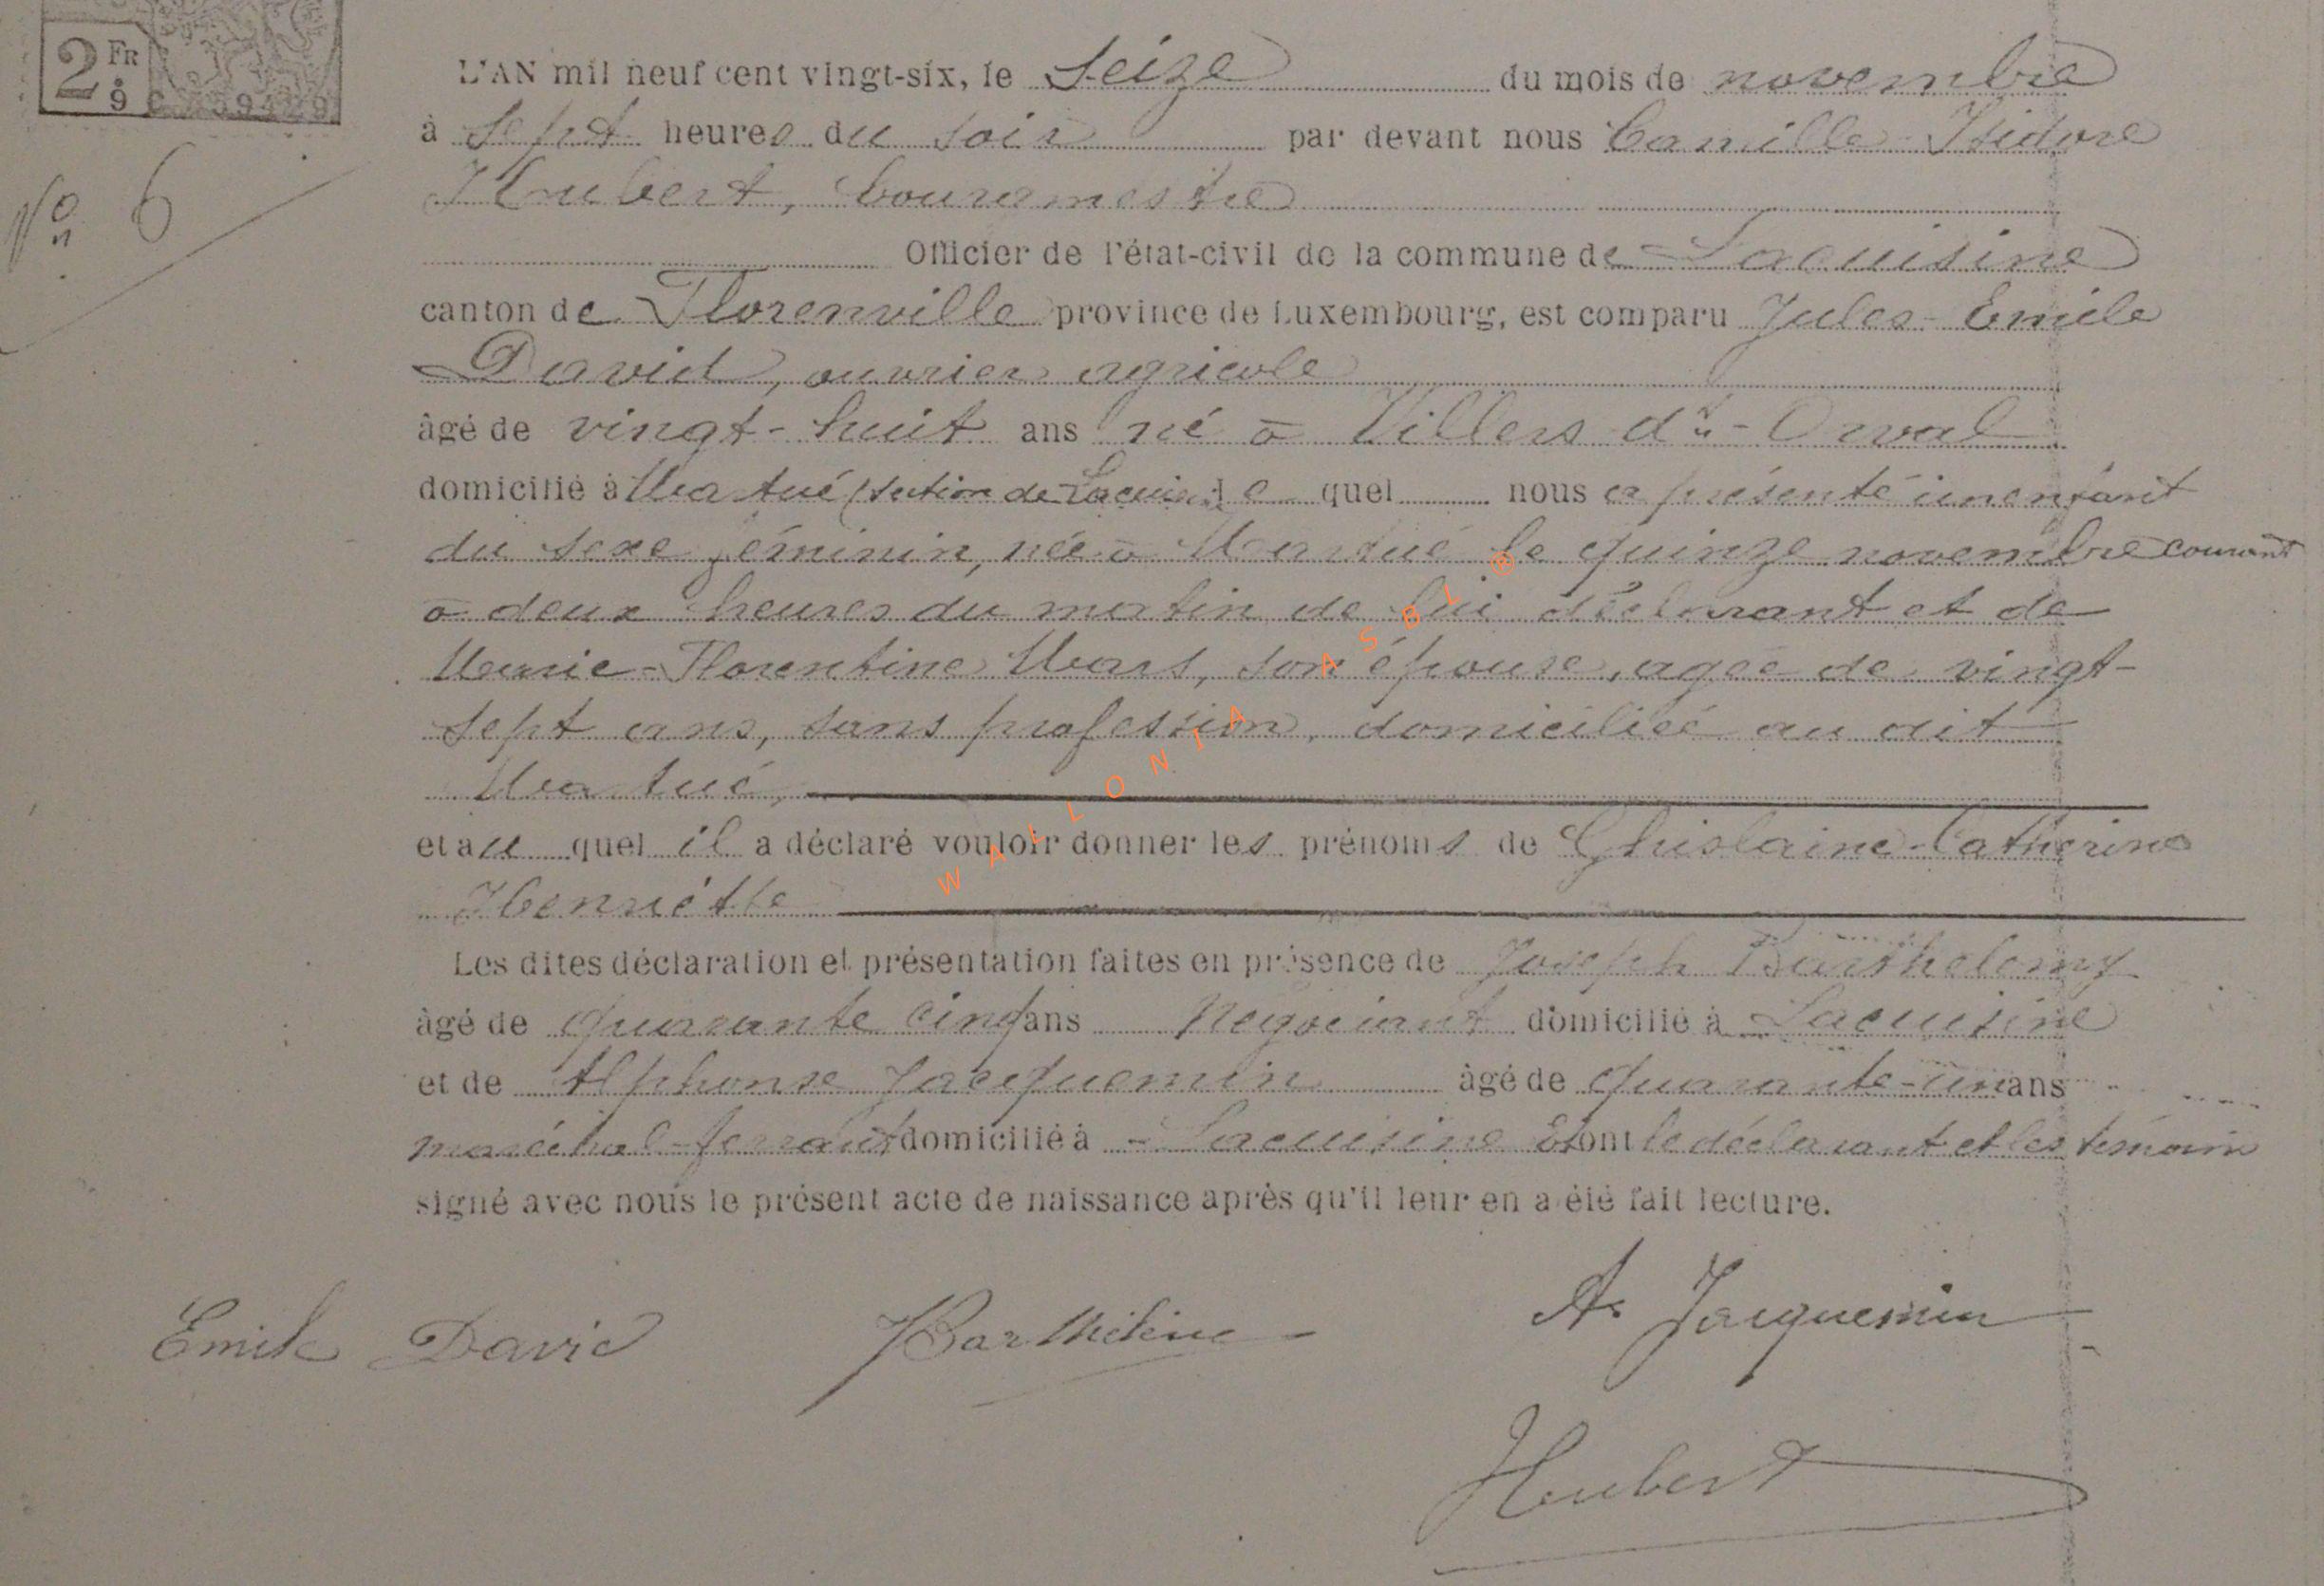 2 FR
9
L'AN mil neuf cent vingt-six, le seize du mois de novembre
à sept heures du soir par devant nous Camille Isidore
No 6
Hubert, bourgmestre
Officier de l'état-civil de la commune de Lacuisine
canton de Florenville province de Luxembourg, est comparu Jules-Emile
David, ouvrier agricole
âgé de vingt-huit ans né à Villers dt-Orval
domicilié à Martué (section de Lacuisine) le quel nous a présenté un enfant
du sexe féminin, née à Martué le quinze novembre courant
à deux heures du matin de lui déclarant et de
Marie-Florentine Mars, son épouse, agée de vingt-
sept ans, sans profession, domiciliée au dit
Martué,
et au quel il a déclaré vouloir donner les prénoms de Ghislaine-Catherine
Henriette
Les dites déclaration et présentation faites en présence de Joseph Barthelemy
âgé de quarante cinq ans négociant domicilié à Lacuisine
et de Alphonse Jacquemin âgé de quarante-un ans
maréchal-ferrant domicilié à Lacuisine Et ont le déclarant et les témoins
signé avec nous le présent acte de naissance après qu'il leur en a été fait lecture.
Emile David
A. Jacquemin
Hubert
WALLONIA ASBL ®